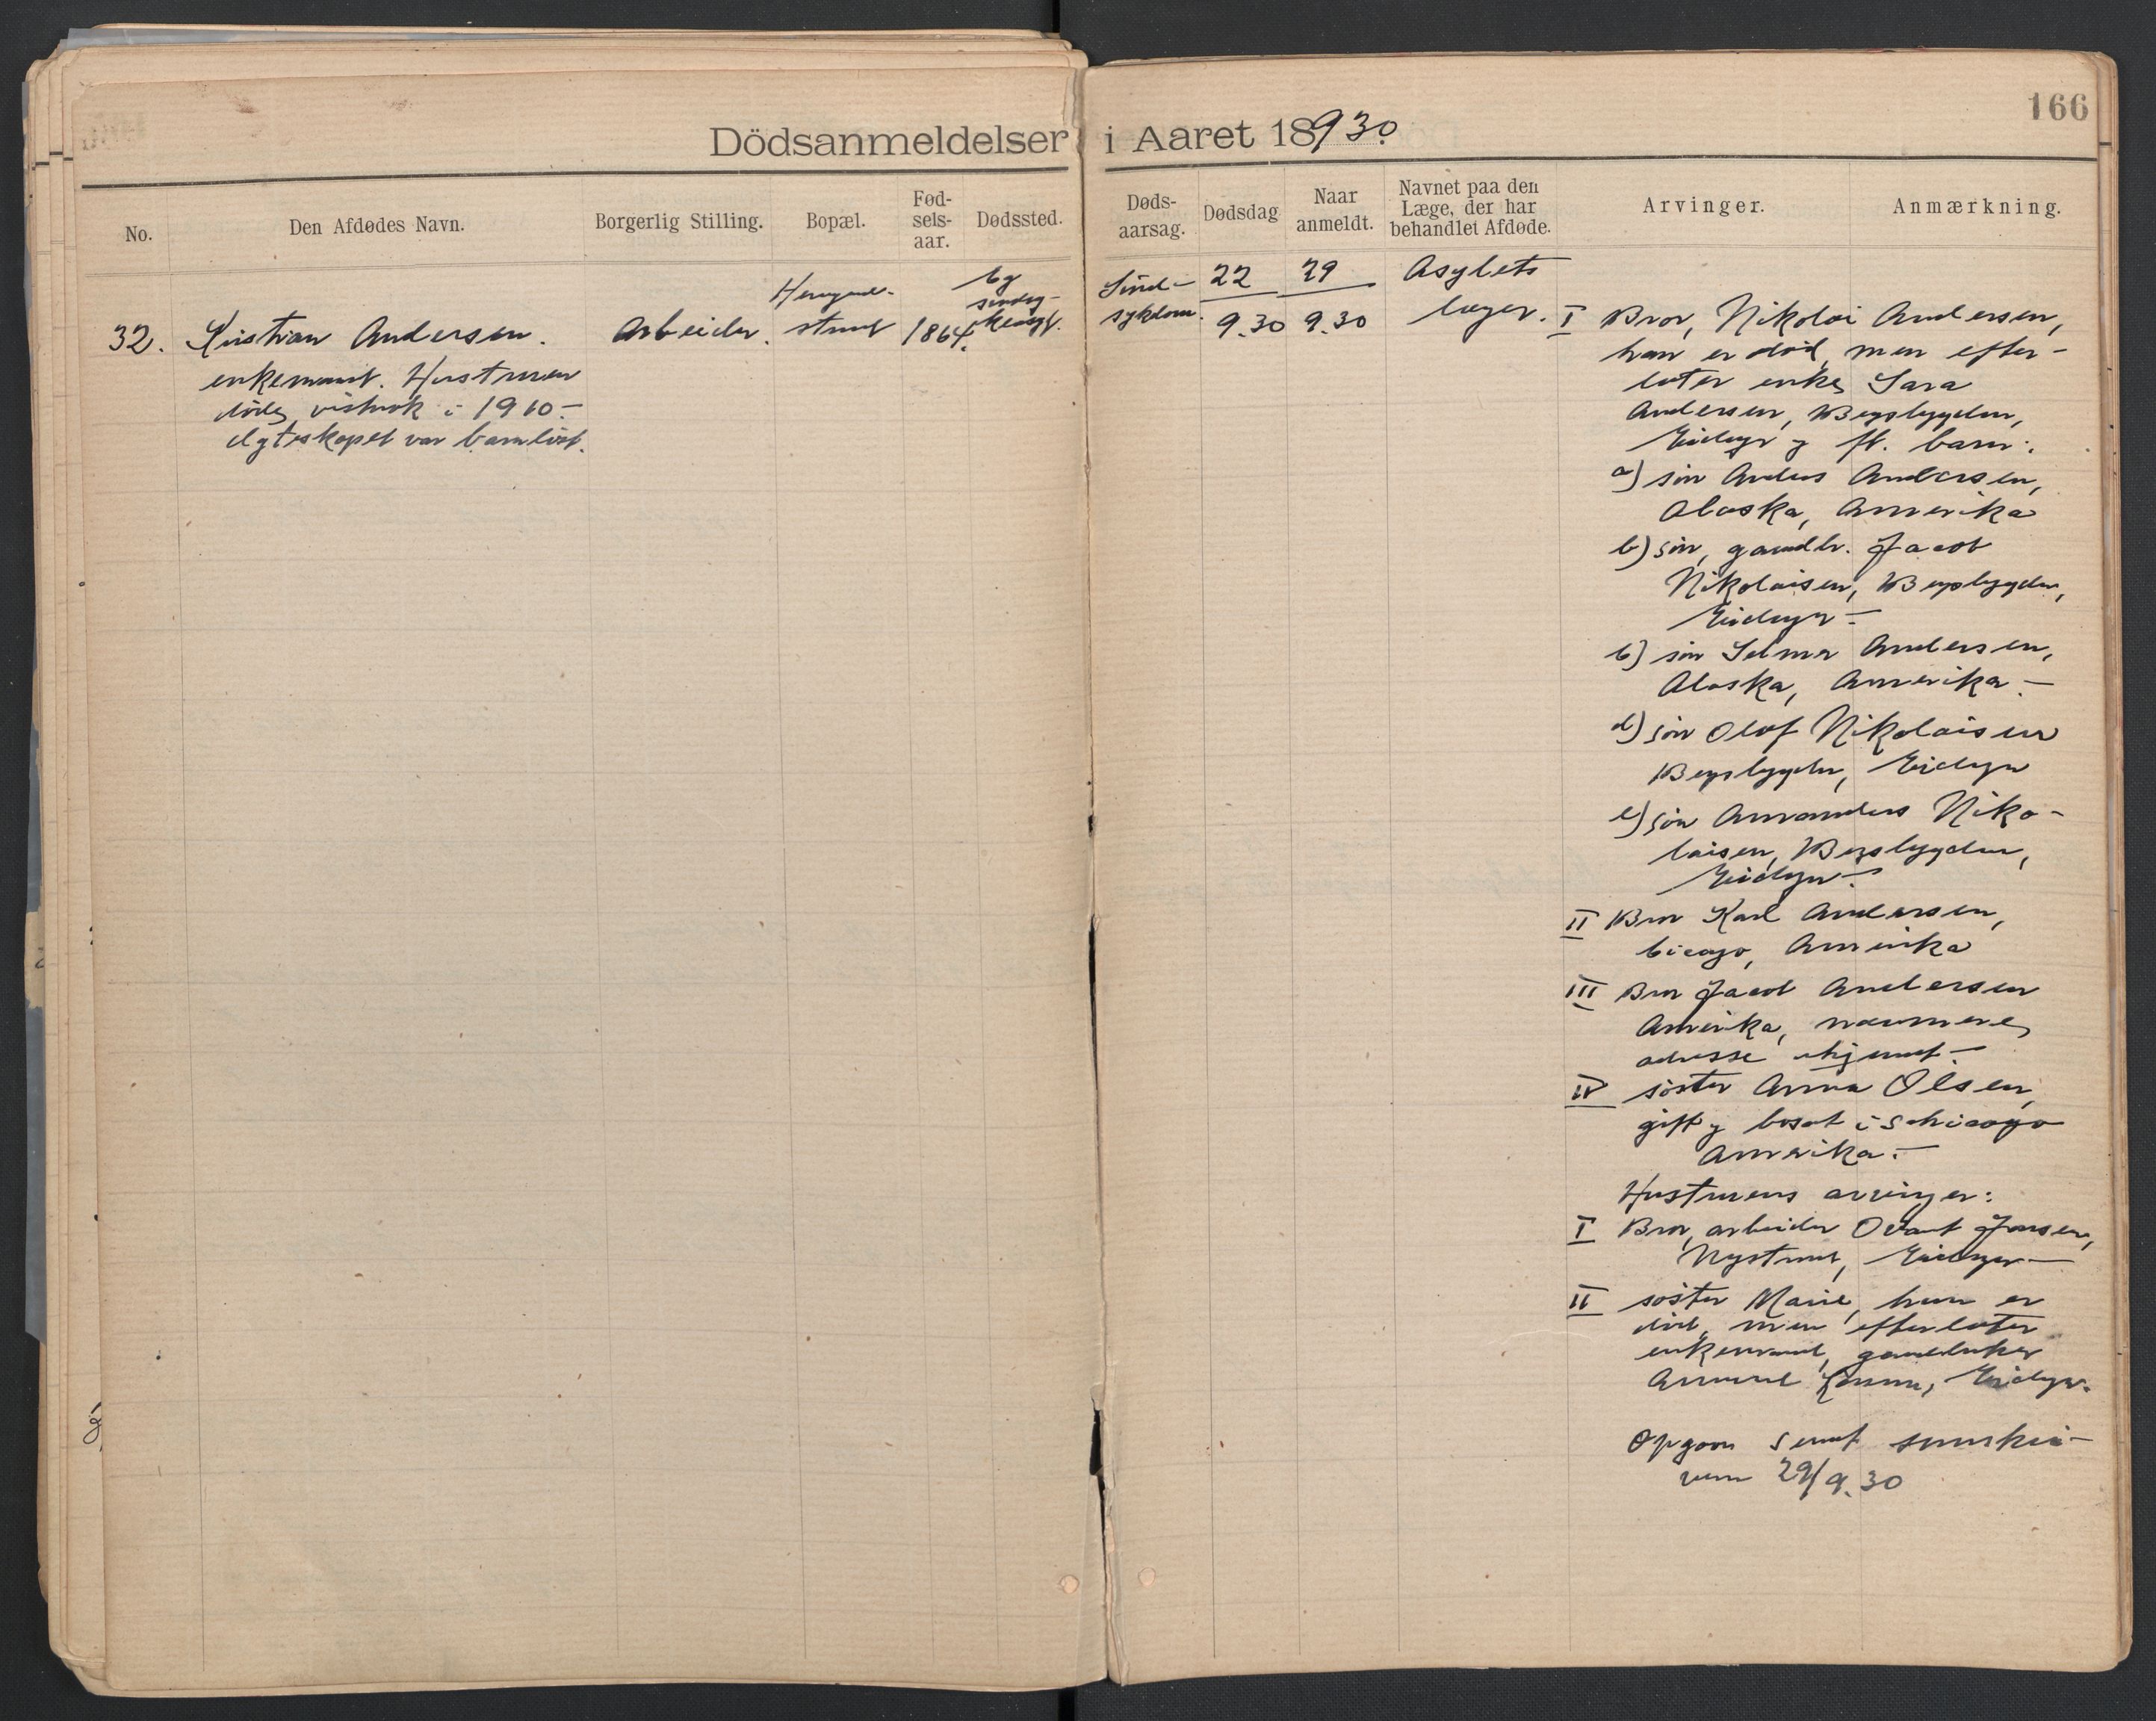 166
Dödsanmeldelser i Aaret 18930.
No.
Den Afdødes Navn.
Borgerlig Stilling.
Bopæl.
Fød-
sels-
aar.
Dødssted.
Døds-
aarsag.
Dødsdag
Naar
anmeldt.
Navnet paa den
Læge, der har
behandlet Afdøde.
Arvinger.
Anmærkning.
32.
Kristian Andersen.
enkemand. Hustruen
døde vistnok i 1910.-
Ægteskapet var barnløst.
Arbeider.
strand
1864.
Sind-
sykdom.
22
9.30
29
9.30
Asylets
læger.
I Bror, Nikolai Andersen,
han er død, men efter-
later enke Sara
Andersen, Bergsbygden,
Eidanger og fl. barn:
a) søn Anders Andersen,
Alaska, Amerika
b) søn, gaardbr. Jacob
Nikolaisen, Bergsbygden,
Eidanger-
c) søn Selmer Andersen,
Alaska, Amerika.-
d) søn Olaf Nikolaisen
Bergsbygden, Eidanger
e) søn Amandus Niko-
laisen, Bergsbygden,
Eidanger.-
II Bror Karl Andersen,
Cicago, Amerika
III Bror Jacob Andersen
Amerika, nærmere
adresse ukjendt.-
IV søster Anna Olsen,
gift og bosat i Schicago
Amerika.-
Hustruens arvinger:
I Bror, arbeider Jonsen,
Nystrand, Eidanger-
II søster Marie, hun er
død, men efterlater
enkemand, gaardbruker
Eidanger.
Opgaver sendt sorenskri-
veren 29/9.30